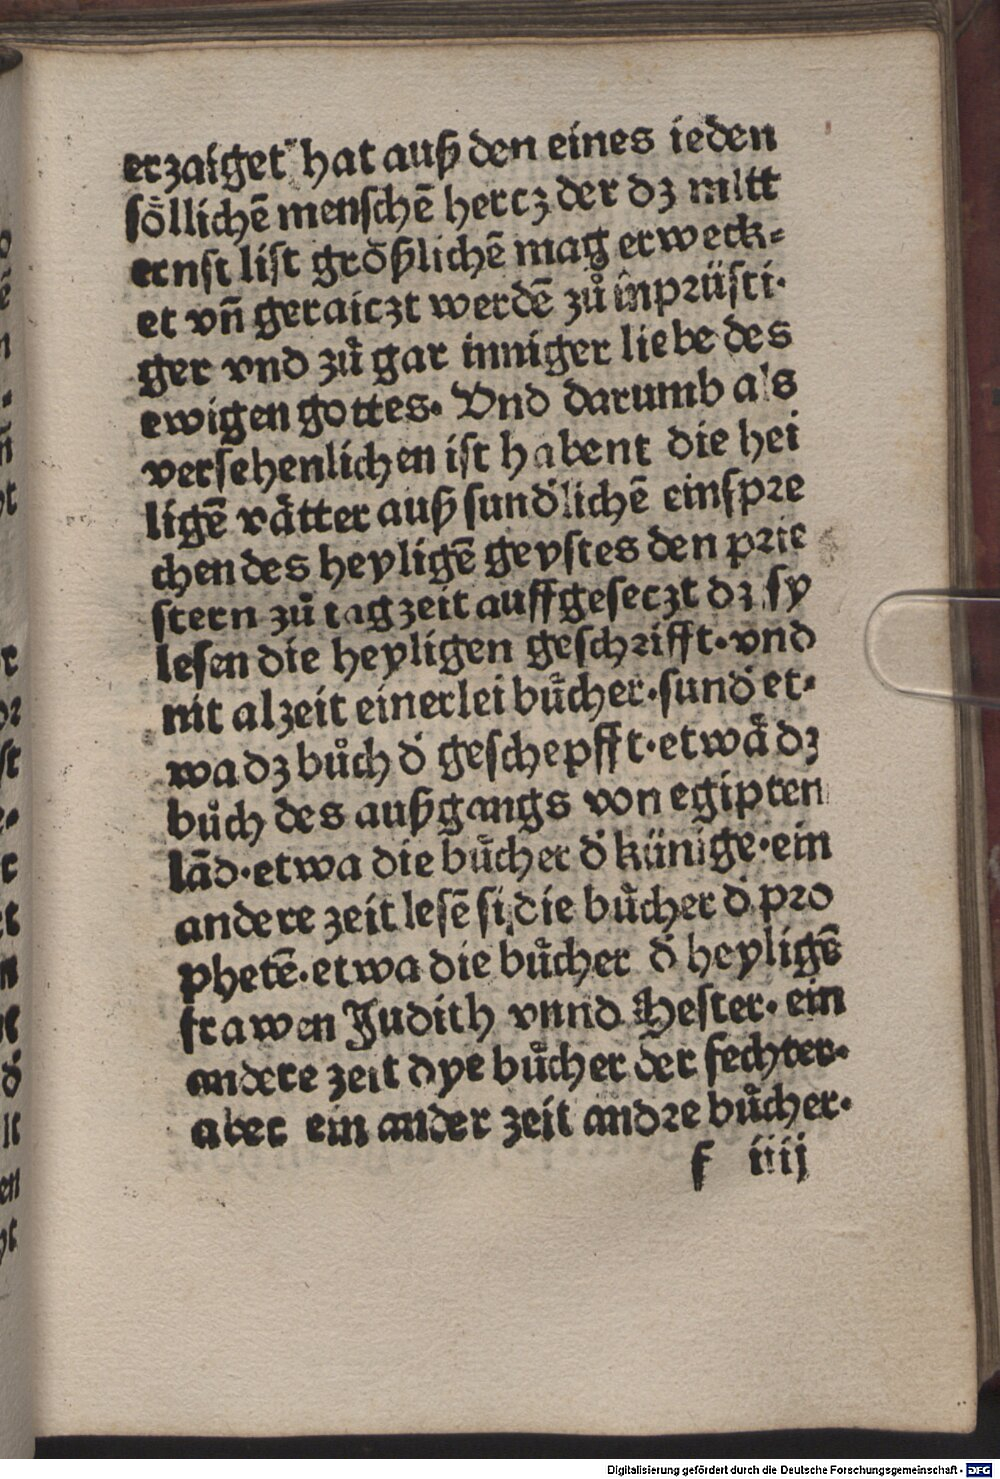 erzaiget hat auß den eines ieden
soͤllichē menschē hercz der dz mitt
ernst list groͤßlichē mag erweck⸗
et vn̄ geraiczt werdē zuͦ inprünsti⸗
ger vnd zuͦ gar inniger liebe des
ewigen gottes. Vnd darumb als
versehenlichen ist habent die hei
ligē vaͤtter auß sundͤlichē einspre
chen des heyligē geystes den prie
stern zuͦ tagzeit auffgeseczt dz sy
lesen die heyligen geschrifft. vnd
nit alzeit einerlei buͤcher. sundͤ et⸗
wa dz buͦch dͤ geschepfft. etwā dz
buͦch des außgangs von egipten
lād. etwa die buͤcher dͤ künige. ein
andere zeit lesē si die buͤcher dͤ pro
phetē. etwa die buͤcher dͤ heyligē
frawen Judith vnnd Hester. ein
andere zeit dye buͤcher der fechter.
aber ein ander zeit andre buͤcher.
f iiij
Digitalisierung gefördert durch die Deutsche Forschungsgemeinschaft - DFG